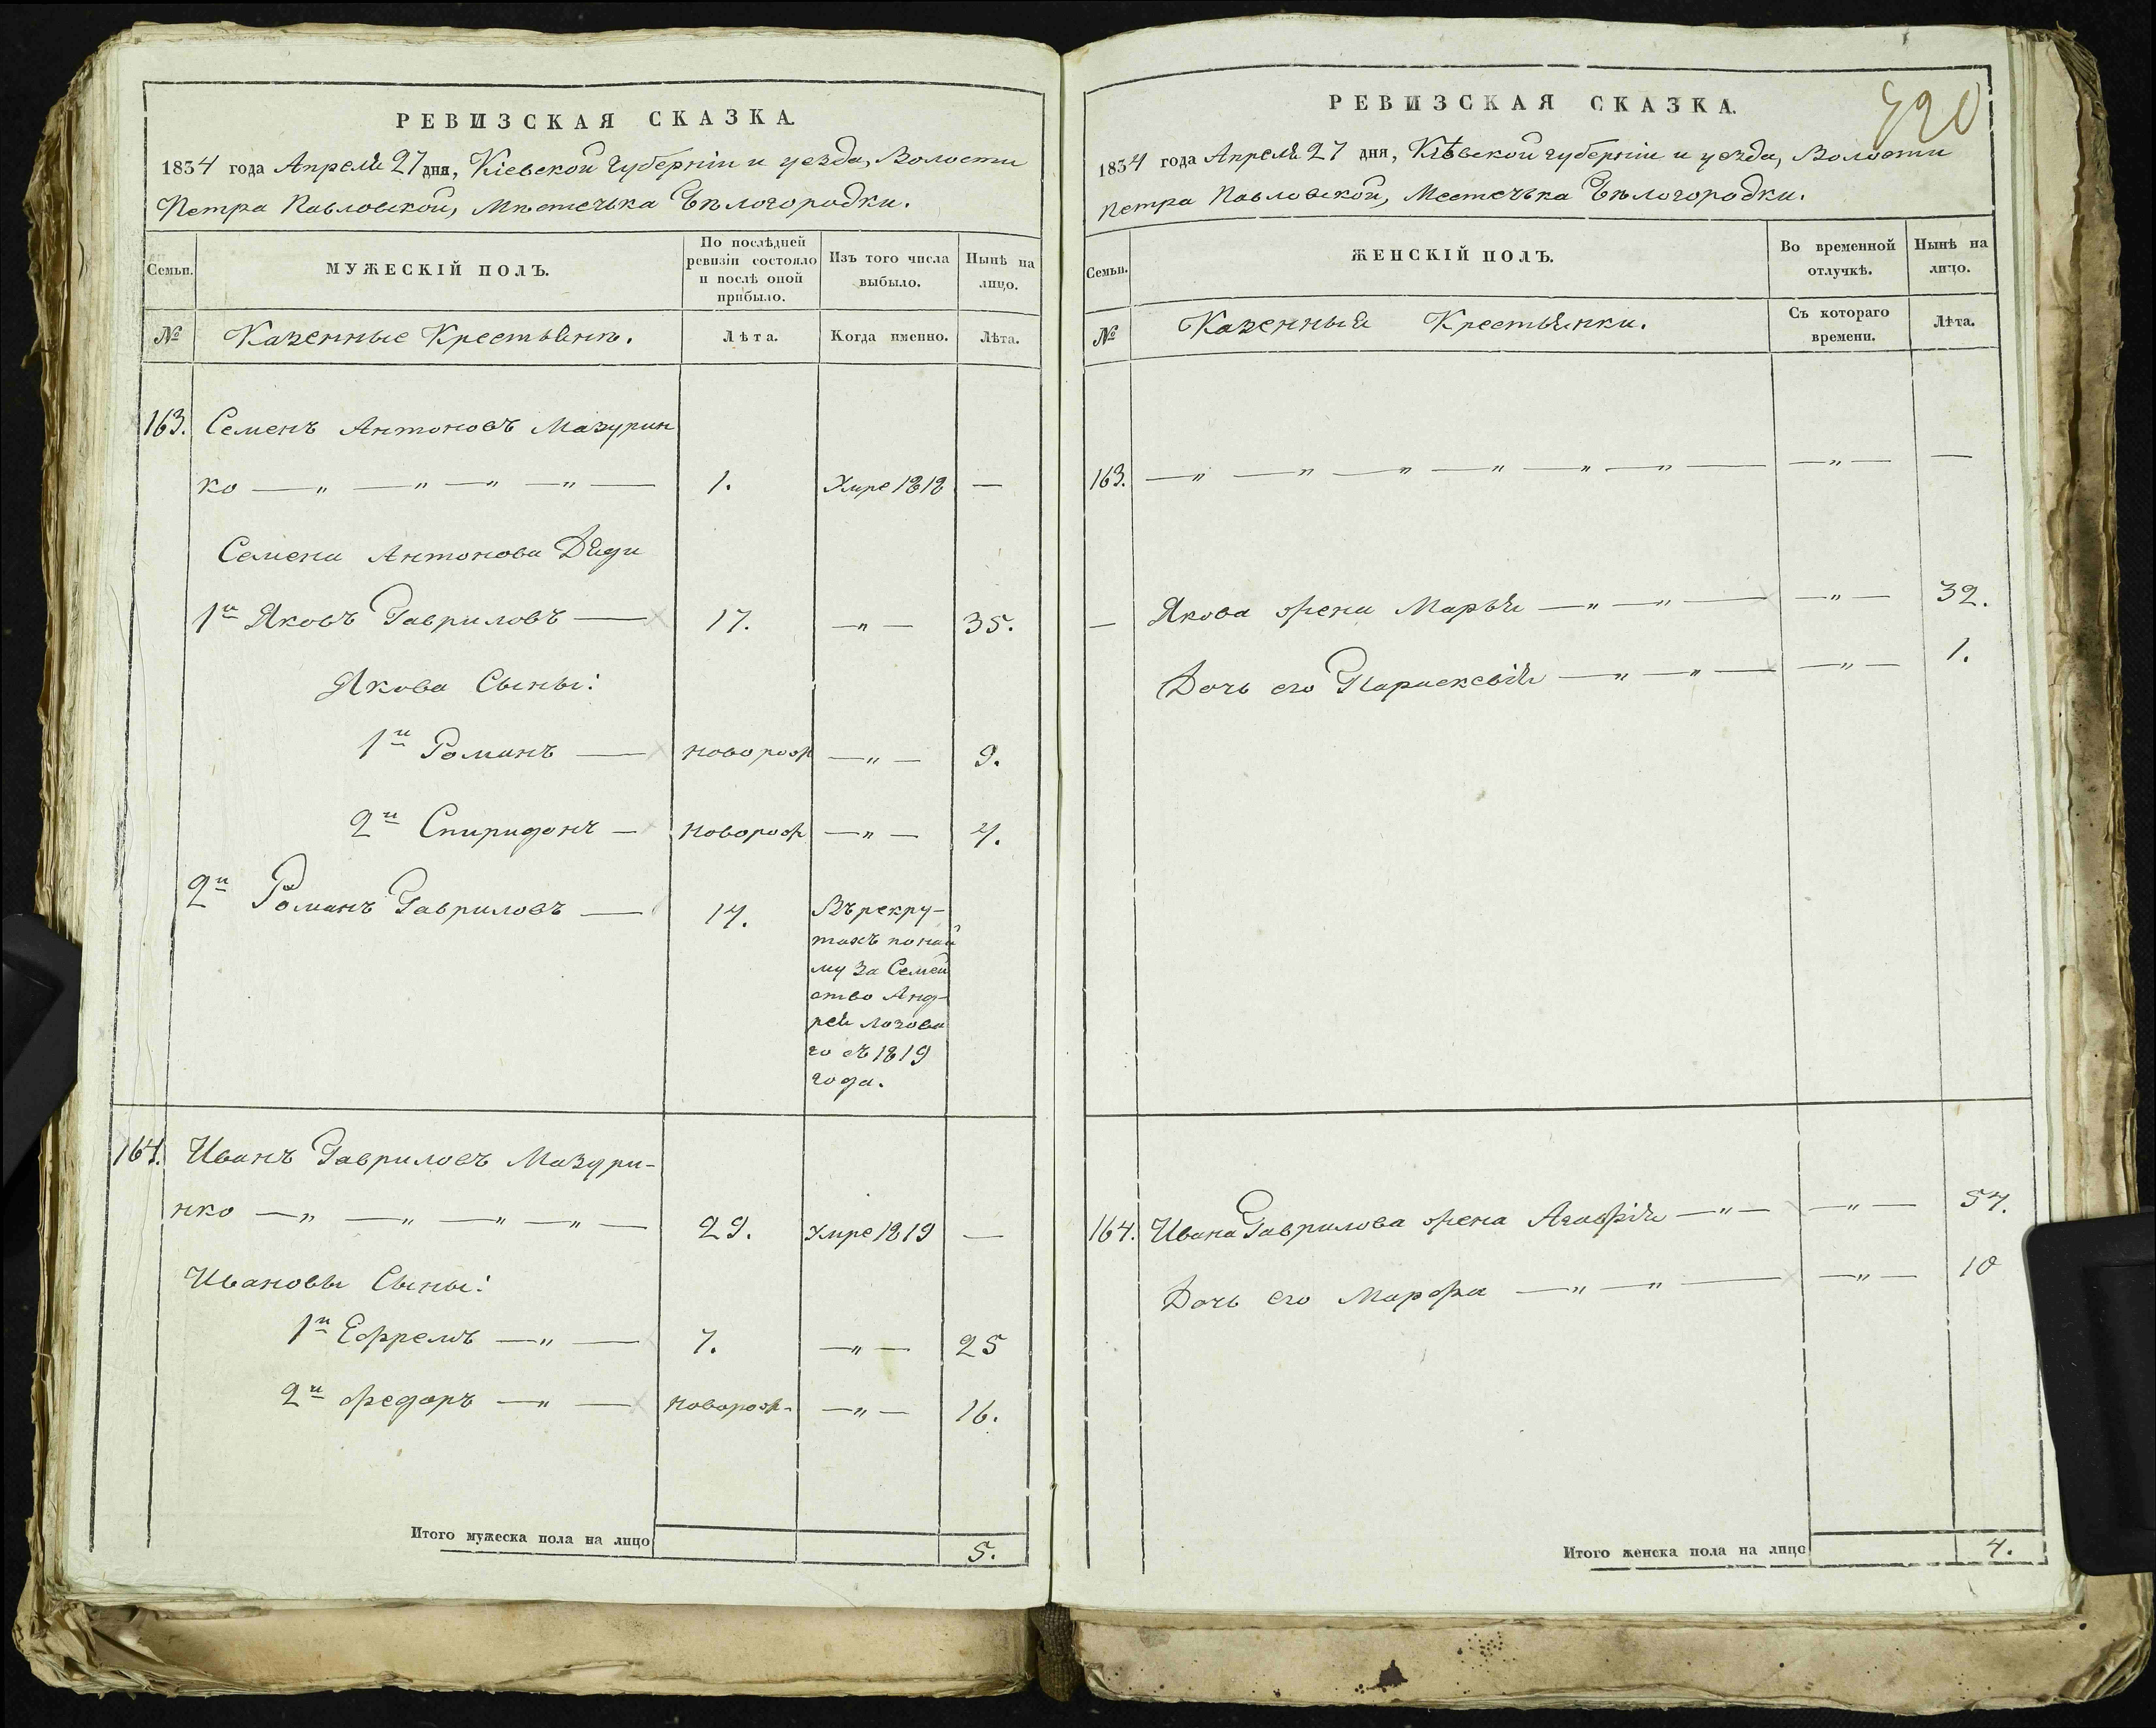 РЕВИЗСКАЯ СКАЗКА.
1834 года Апреля 27 дня, Кіевской губерніи и уезда, Волости
Петра Павловской, Мѣстечька Бѣлогородки.
Семьи.
МУЖЕСКІЙ ПОЛЪ.
По послѣдней ревизіи состояло и послѣ оной прибыло.
Изъ того числа выбыло.
Нынѣ на лицо.
№
Казенные Крестьянѣ.
Лѣта.
Когда именно.
Лѣта.
163. Семенъ Антоновъ Мазурин
ко — „ — „ — „ — „ — 1. Умре 1818 —
Семена Антонова Дяди
1й Яковъ Гавриловъ — 17. — „ — 35.
Якова Сыны:
1й Романъ — новорож — „ — 9.
2й Спиридонъ — новорож — „ — 4.
2й Романъ Гавриловъ — 14. Въ рекру-
тахъ понай
му за Семей
ство Анд-
рея Лозова
го съ 1819
года.
164. Иванъ Гавриловъ Мазури-
нко — „ — „ — „ — „ — 29. Умре 1819 —
Ивановы Сыны:
1й Ефремъ — „ — 7. — „ — 25
2й Федоръ — „ — новорож- — „ — 16.
Итого мужеска пола на лицо 5.
РЕВИЗСКАЯ СКАЗКА.
1834 года Апреля 27 дня, Кіѣвской губерніи и уезда, Волости
Петра Павловской, Местечька Бѣлогородки.
Семьи.
ЖЕНСКІЙ ПОЛЪ.
Во временной отлучкѣ.
Нынѣ на лицо.
№
Казенныя Крестьянки.
Съ котораго времени.
Лѣта.
163. — „ — „ — „ — „ — „ — „ — — „ — —
— Якова жена Марья — „ — „ — — „ — 32.
Дочь его Параскевія — „ — „ — — „ — 1.
164. Ивана Гаврилова жена Агафія — „ — — „ — 54.
Дочь его Марфа — „ — „ — — „ — 18
Итого женска пола на лицо 4.